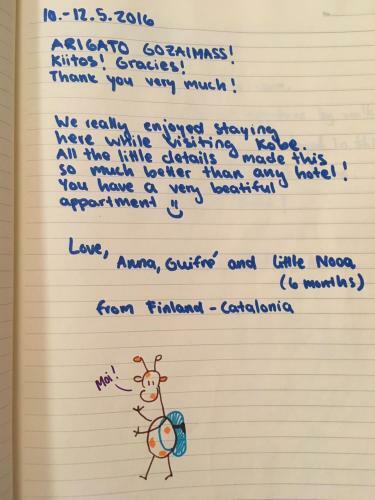 10.-12.5.2016
ARIGATO GOZAIMASS!
Kiitos! Gracies!
Thank you very much!
We really enjoyed staying
here while visiting Kobe.
All the little details made this
so much better than any hotel!
You have a very beatiful
appartment
Love,
Anna, Guifré and Little Nooa
(6 months)
from Finland - Catalonia
Moi!